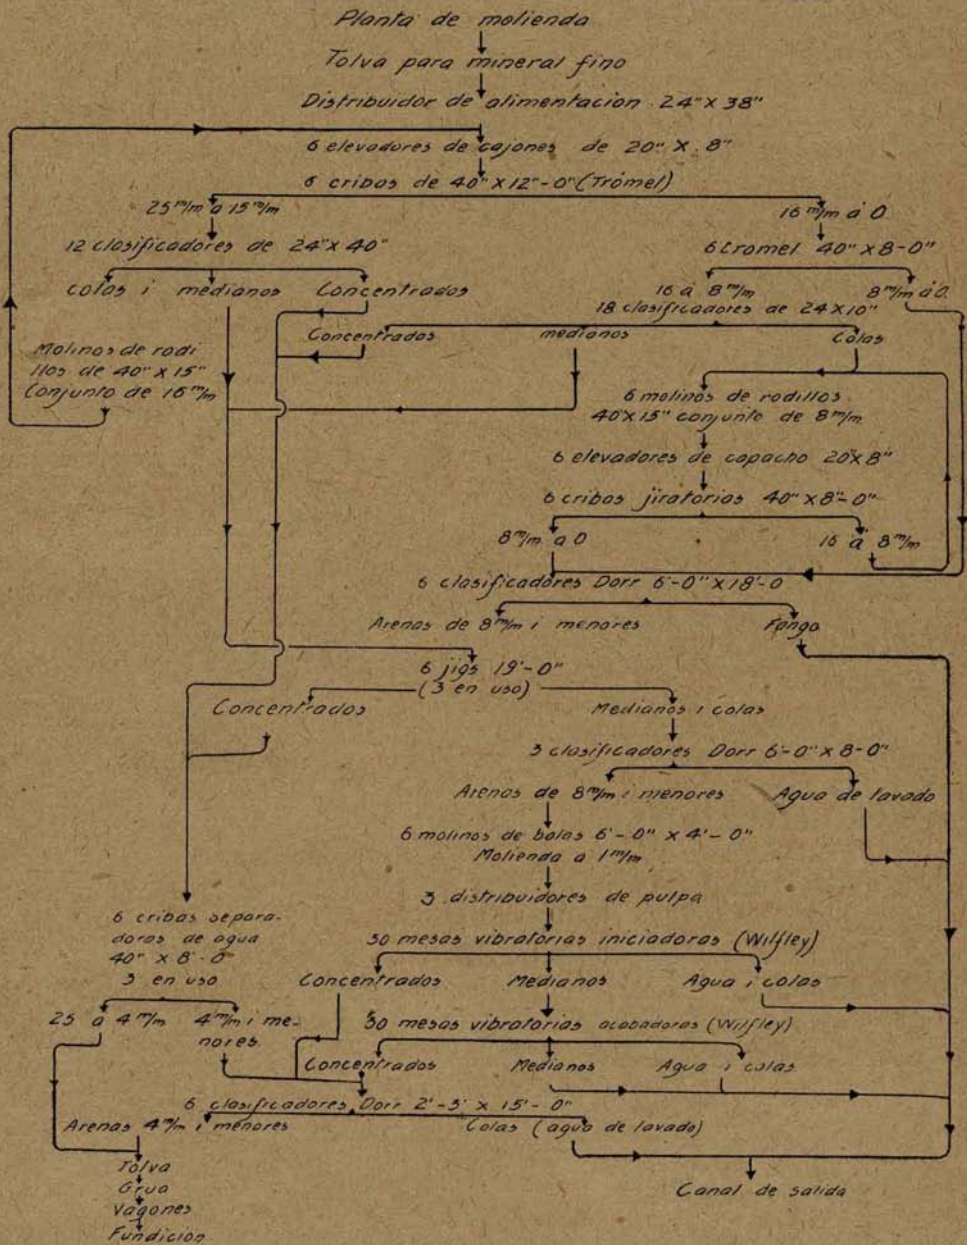 Planta de molienda
Tolva para mineral fino
Distribuidor de alimentacion 24" X 38"
6 elevadores de cajones de 20" X 8"
6 cribas de 40" X 12"-0" (Trómel)
25 m/m a 15 m/m
16 m/m á 0
12 clasificadores de 24" x 40"
6 tromel 40" x 8-0"
colas i medianos
Concentrados
16 á 8 m/m
8 m/m á 0
18 clasificadores de 24 X 10"
Concentrados
medianos
Colas
Molinos de rodi
llos de 40" x 15"
Conjunto de 16 m/m
6 molinos de rodillos
40"X 15" conjunto de 8 m/m
6 elevadores de capacho 20"x 8"
6 cribas jiratorias 40" x 8'-0"
8 m/m a 0
16 á 8 m/m
6 clasificadores Dorr 6'-0" X 18'-0
Arenas de 8 m/m i menores
Fango
6 jigs 19'-0"
(3 en uso)
Concentrados
Medianos i colas
3 clasificadores Dorr 6'-0" x 8-0"
Arenas de 8 m/m i menores
Agua de lavado
6 molinos de bolas 6'-0" x 4'-0"
Molienda a 1 m/m
3 distribuidores de pulpa
6 cribas separa-
doras de agua
40" X 8'-0"
3 en uso
30 mesas vibratorias iniciadoras (Wilfley)
Concentrados
Medianos
Agua i colas
25 á 4 m/m
4 m/m i me-
nores
30 mesas vibratorias acabadoras (Wilfley)
Concentrados
Medianos
Agua i colas
6 clasificadores Dorr 2'-3' x 15'-0"
Arenas 4 m/m i menores
Colas (agua de lavado)
Tolva
Grua
Vagones
Fundicion
Canal de salida